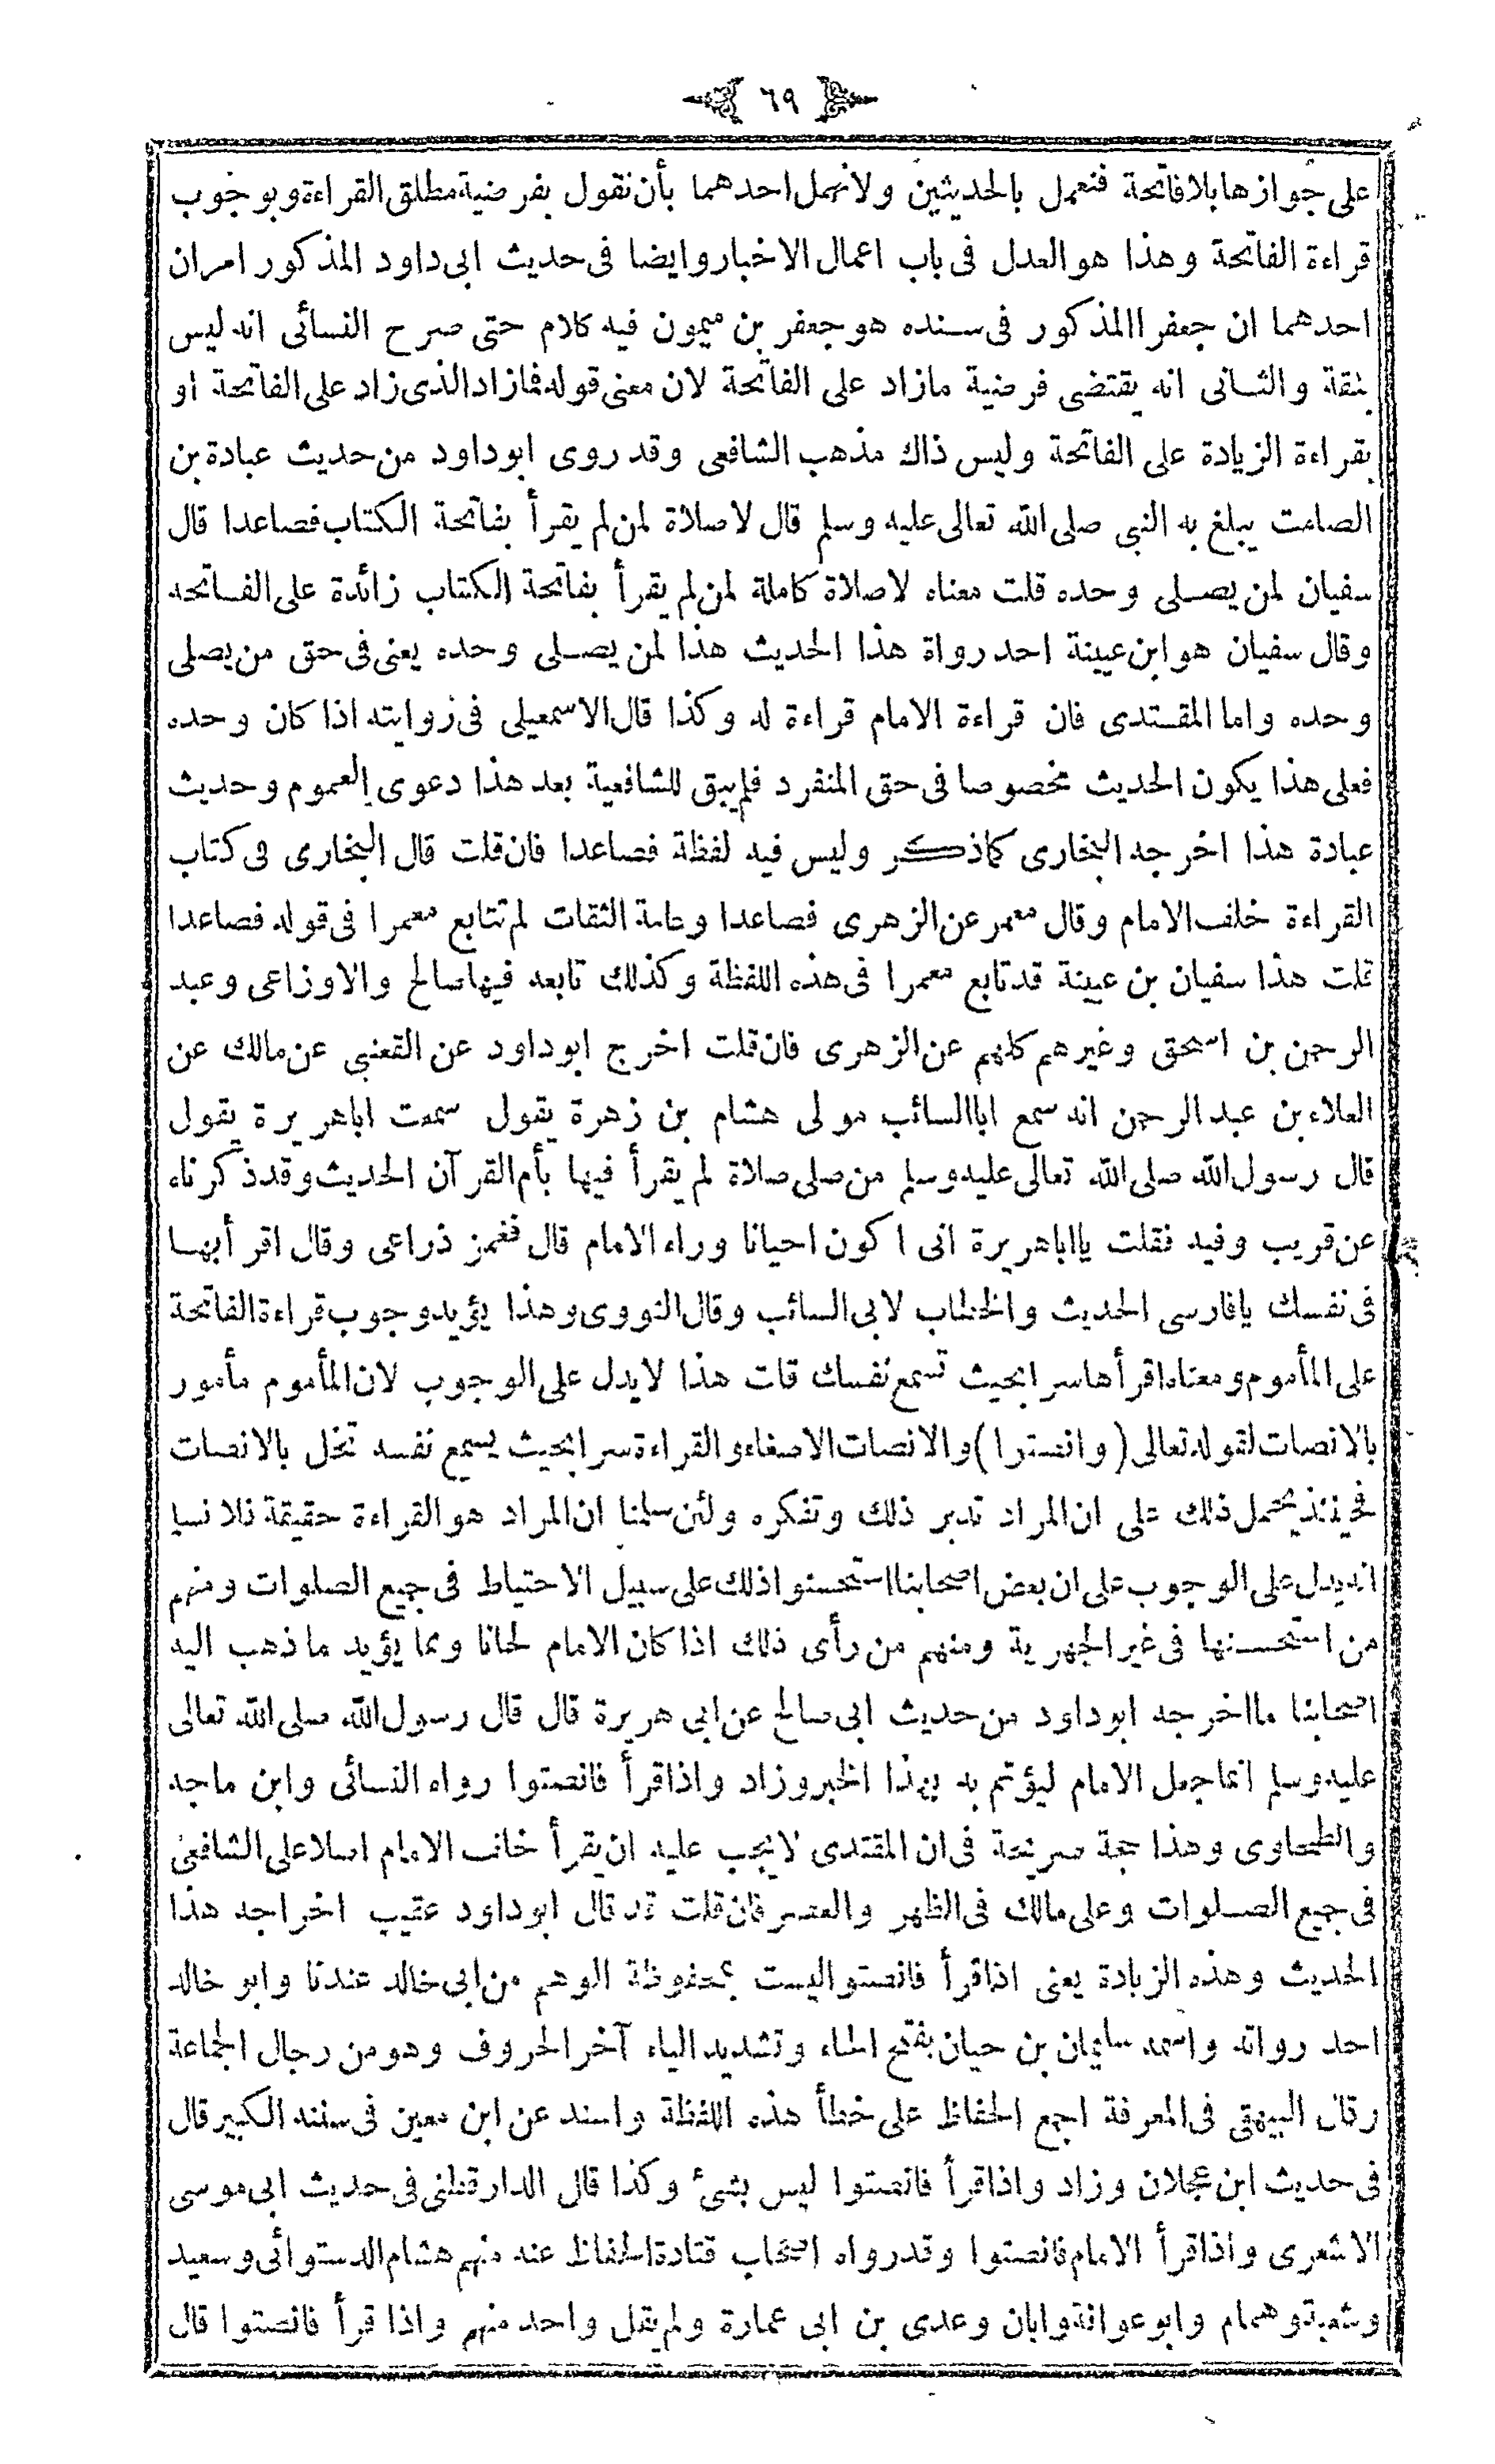 ٦٩
على جوازها بلا فاتحة فنعمل بالحديثين ولا نهمل احدهما بأن نقول بفرضية مطلق القراءة وبوجوب
قراءة الفاتحة وهذا هو العدل فى باب اعمال الاخبار وايضا فى حديث ابى داود المذكور امران
احدهما ان جعفرا المذكور فى سنده هو جعفر بن ميمون فيه كلام حتى صرح النسائى انه ليس
بثقة والثانى انه يقتضى فرضية مازاد على الفاتحة لان معنى قوله فمازاد الذى زاد على الفاتحة او
بقراءة الزيادة على الفاتحة وليس ذاك مذهب الشافعى وقد روى ابوداود من حديث عبادة بن
الصامت يبلغ به النبى صلى الله تعالى عليه وسلم قال لاصلاة لمن لم يقرأ بفاتحة الكتاب فصاعدا قال
سفيان لمن يصلى وحده قلت معناه لاصلاة كاملة لمن لم يقرأ بفاتحة الكتاب زائدة على الفاتحه
وقال سفيان هو ابن عيينة احد رواة هذا الحديث هذا لمن يصلى وحده يعنى فى حق من يصلى
وحده واما المقتدى فان قراءة الامام قراءة له وكذا قال الاسمعيلى فى روايته اذا كان وحده
فعلى هذا يكون الحديث مخصوصا فى حق المنفرد فلم يبق للشافعية بعد هذا دعوى العموم وحديث
عبادة هذا اخرجه البخارى كماذكر وليس فيه لفظة فصاعدا فان قلت قال البخارى فى كتاب
القراءة خلف الامام وقال معمر عن الزهرى فصاعدا وعامة الثقات لم تتابع معمرا فى قوله فصاعدا
قلت هذا سفيان بن عيينة قد تابع معمرا فى هذه اللفظة وكذلك تابعه فيها صالح والاوزاعى وعبد
الرحمن بن اسحق وغيرهم كلهم عن الزهرى فان قلت اخرج ابوداود عن القعنبى عن مالك عن
العلاء بن عبد الرحمن انه سمع ابا السائب مولى هشام بن زهرة يقول سمعت اباهريرة يقول
قال رسول الله صلى الله تعالى عليه وسلم من صلى صلاة لم يقرأ فيها بأم القرآن الحديث وقدذكرناه
عن قريب وفيه فقلت يااباهريرة انى اكون احيانا وراء الامام قال فغمز ذراعى وقال اقرأ بها
فى نفسك يافارسى الحديث والخطاب لابى السائب وقال النووى وهذا يؤيد وجوب قراءة الفاتحة
على المأموم ومعناه اقرأها سرا بحيث تسمع نفسك قلت هذا لايدل على الوجوب لان المأموم مأمور
بالانصات لقوله تعالى (وانصتوا) والانصات الاصغاء والقراءة سرا بحيث يسمع نفسه تخل بالانصات
فحينئذ يحتمل ذلك على ان المراد تدبر ذلك وتفكره ولئن سلمنا ان المراد هو القراءة حقيقة فلا نسلم
انه يدل على الوجوب على ان بعض اصحابنا استحسنوا ذلك على سبيل الاحتياط فى جميع الصلوات ومنهم
من استحسنها فى غير الجهرية ومنهم من رأى ذلك اذا كان الامام لحانا ومما يؤيد ماذهب اليه
اصحابنا مااخرجه ابوداود من حديث ابى صالح عن ابى هريرة قال قال رسول الله صلى الله تعالى
عليه وسلم انما جعل الامام ليؤتم به بهذا الخبر وزاد واذا قرأ فانصتوا رواه النسائى وابن ماجه
والطحاوى وهذا حجة صريحة فى ان المقتدى لايجب عليه ان يقرأ خلف الامام اصلا على الشافعى
فى جميع الصلوات وعلى مالك فى الظهر والعصر فان قلت قد قال ابوداود عقيب اخراجه هذا
الحديث وهذه الزيادة يعنى اذا قرأ فانصتوا ليست بمحفوظة الوهم من ابى خالد عندنا وابو خالد
احد رواته واسمه سليمان بن حيان بفتح الحاء وتشديد الياء آخر الحروف وهو من رجال الجماعة
وقال البيهقى فى المعرفة اجمع الحفاظ على خطأ هذه اللفظة واسند عن ابن معين فى سننه الكبير قال
فى حديث ابن عجلان وزاد واذا قرأ فانصتوا ليس بشئ وكذا قال الدارقطنى فى حديث ابى موسى
الاشعرى واذا قرأ الامام فانصتوا وقد رواه اصحاب قتادة الحفاظ عنه منهم هشام الدستوائى وسعيد
وشعبة وهمام وابو عوانة وابان وعدى بن ابى عمارة ولم يقل واحد منهم واذا قرأ فانصتوا قال